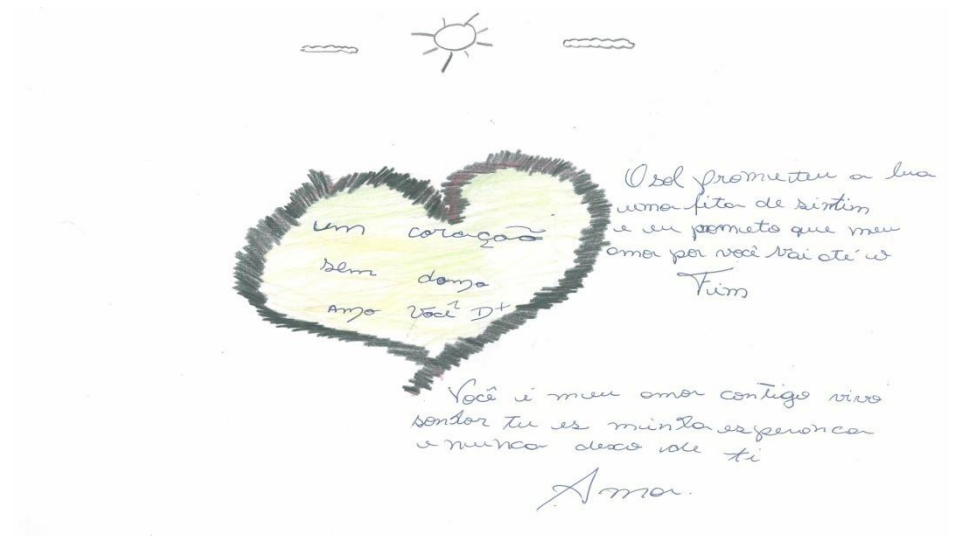 um coração
sem dono
amo você D+
O sol prometeu a lua
uma fita de sintim
e eu pometo que meu
amor por você vai até o
Fim
Você é meu amor contigo vivo
sondor tu es minha esperanca
e nunca dexo de ti
Amor.